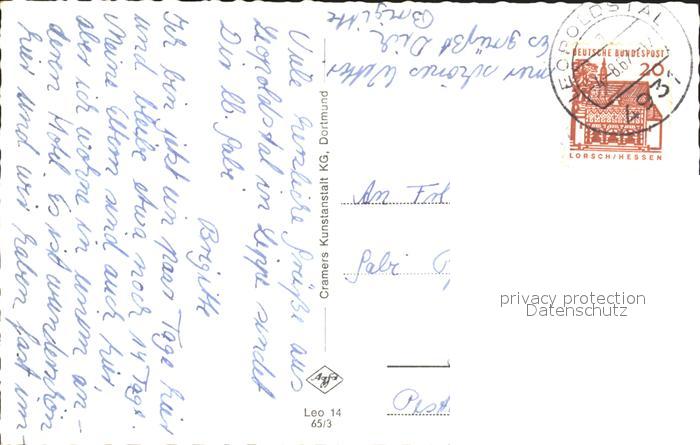 Viele herzliche Grüße aus
Leopoldstal in Lippe sendet
Dir lb. Gabi
Brigitte
Ich bin jetzt ein paar Tage hier
und bleibe etwa noch 14 Tage.
Meine Eltern sind auch hier,
aber ich wohne in einem an-
deren Hotel. Es ist wunderschön
hier und wir haben fast im-
mer schönes Wetter
Es grüßt Dich
Brigitte
Cramers Kunstanstalt KG., Dortmund
Agfa
Leo 14
65/3
LEOPOLDSTAL
4931
DEUTSCHE BUNDESPOST
20
LORSCH/HESSEN
An Frl
Gabi
privacy protection
Datenschutz